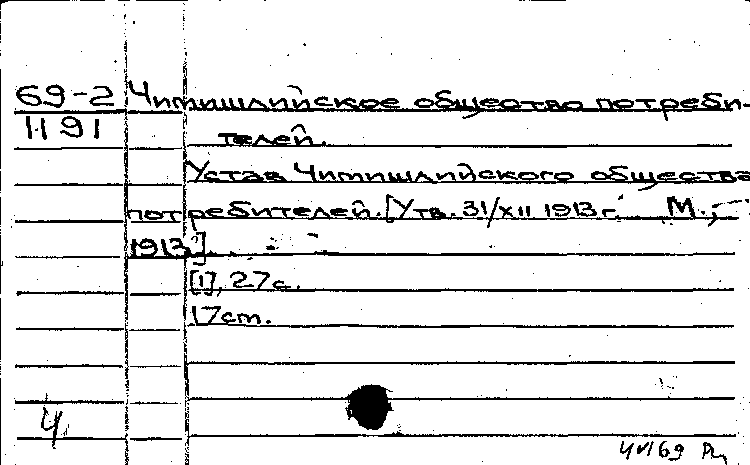 69-2 Чимишлийское общество потреби-
1191 телей.
Устав Чимишлийского общества
потребителей. [Утв. 31/XII 1913 г. М.,
1913]
[1], 27 с.
17 см.
Ч